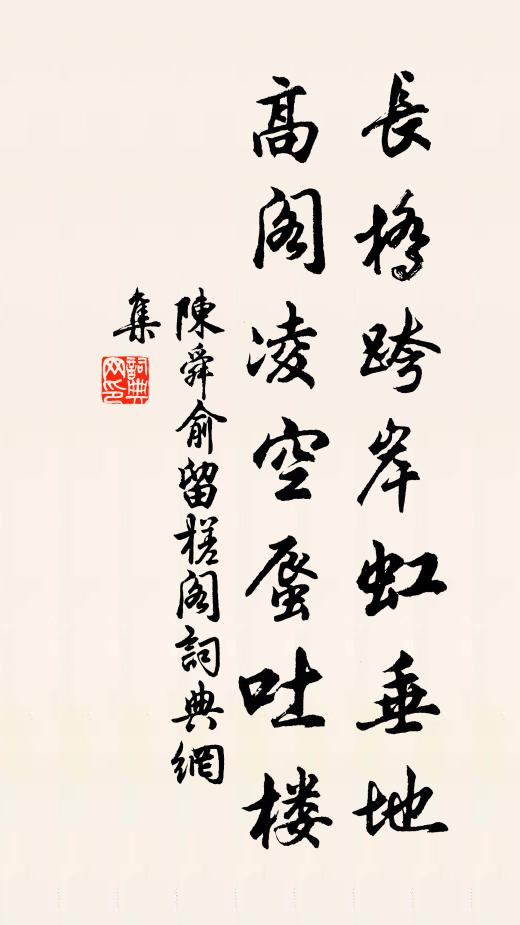 長橋跨岸虹垂地
高阁凌空蜃吐楼
陳舜俞留槎阁詞典網
集
詞典网印